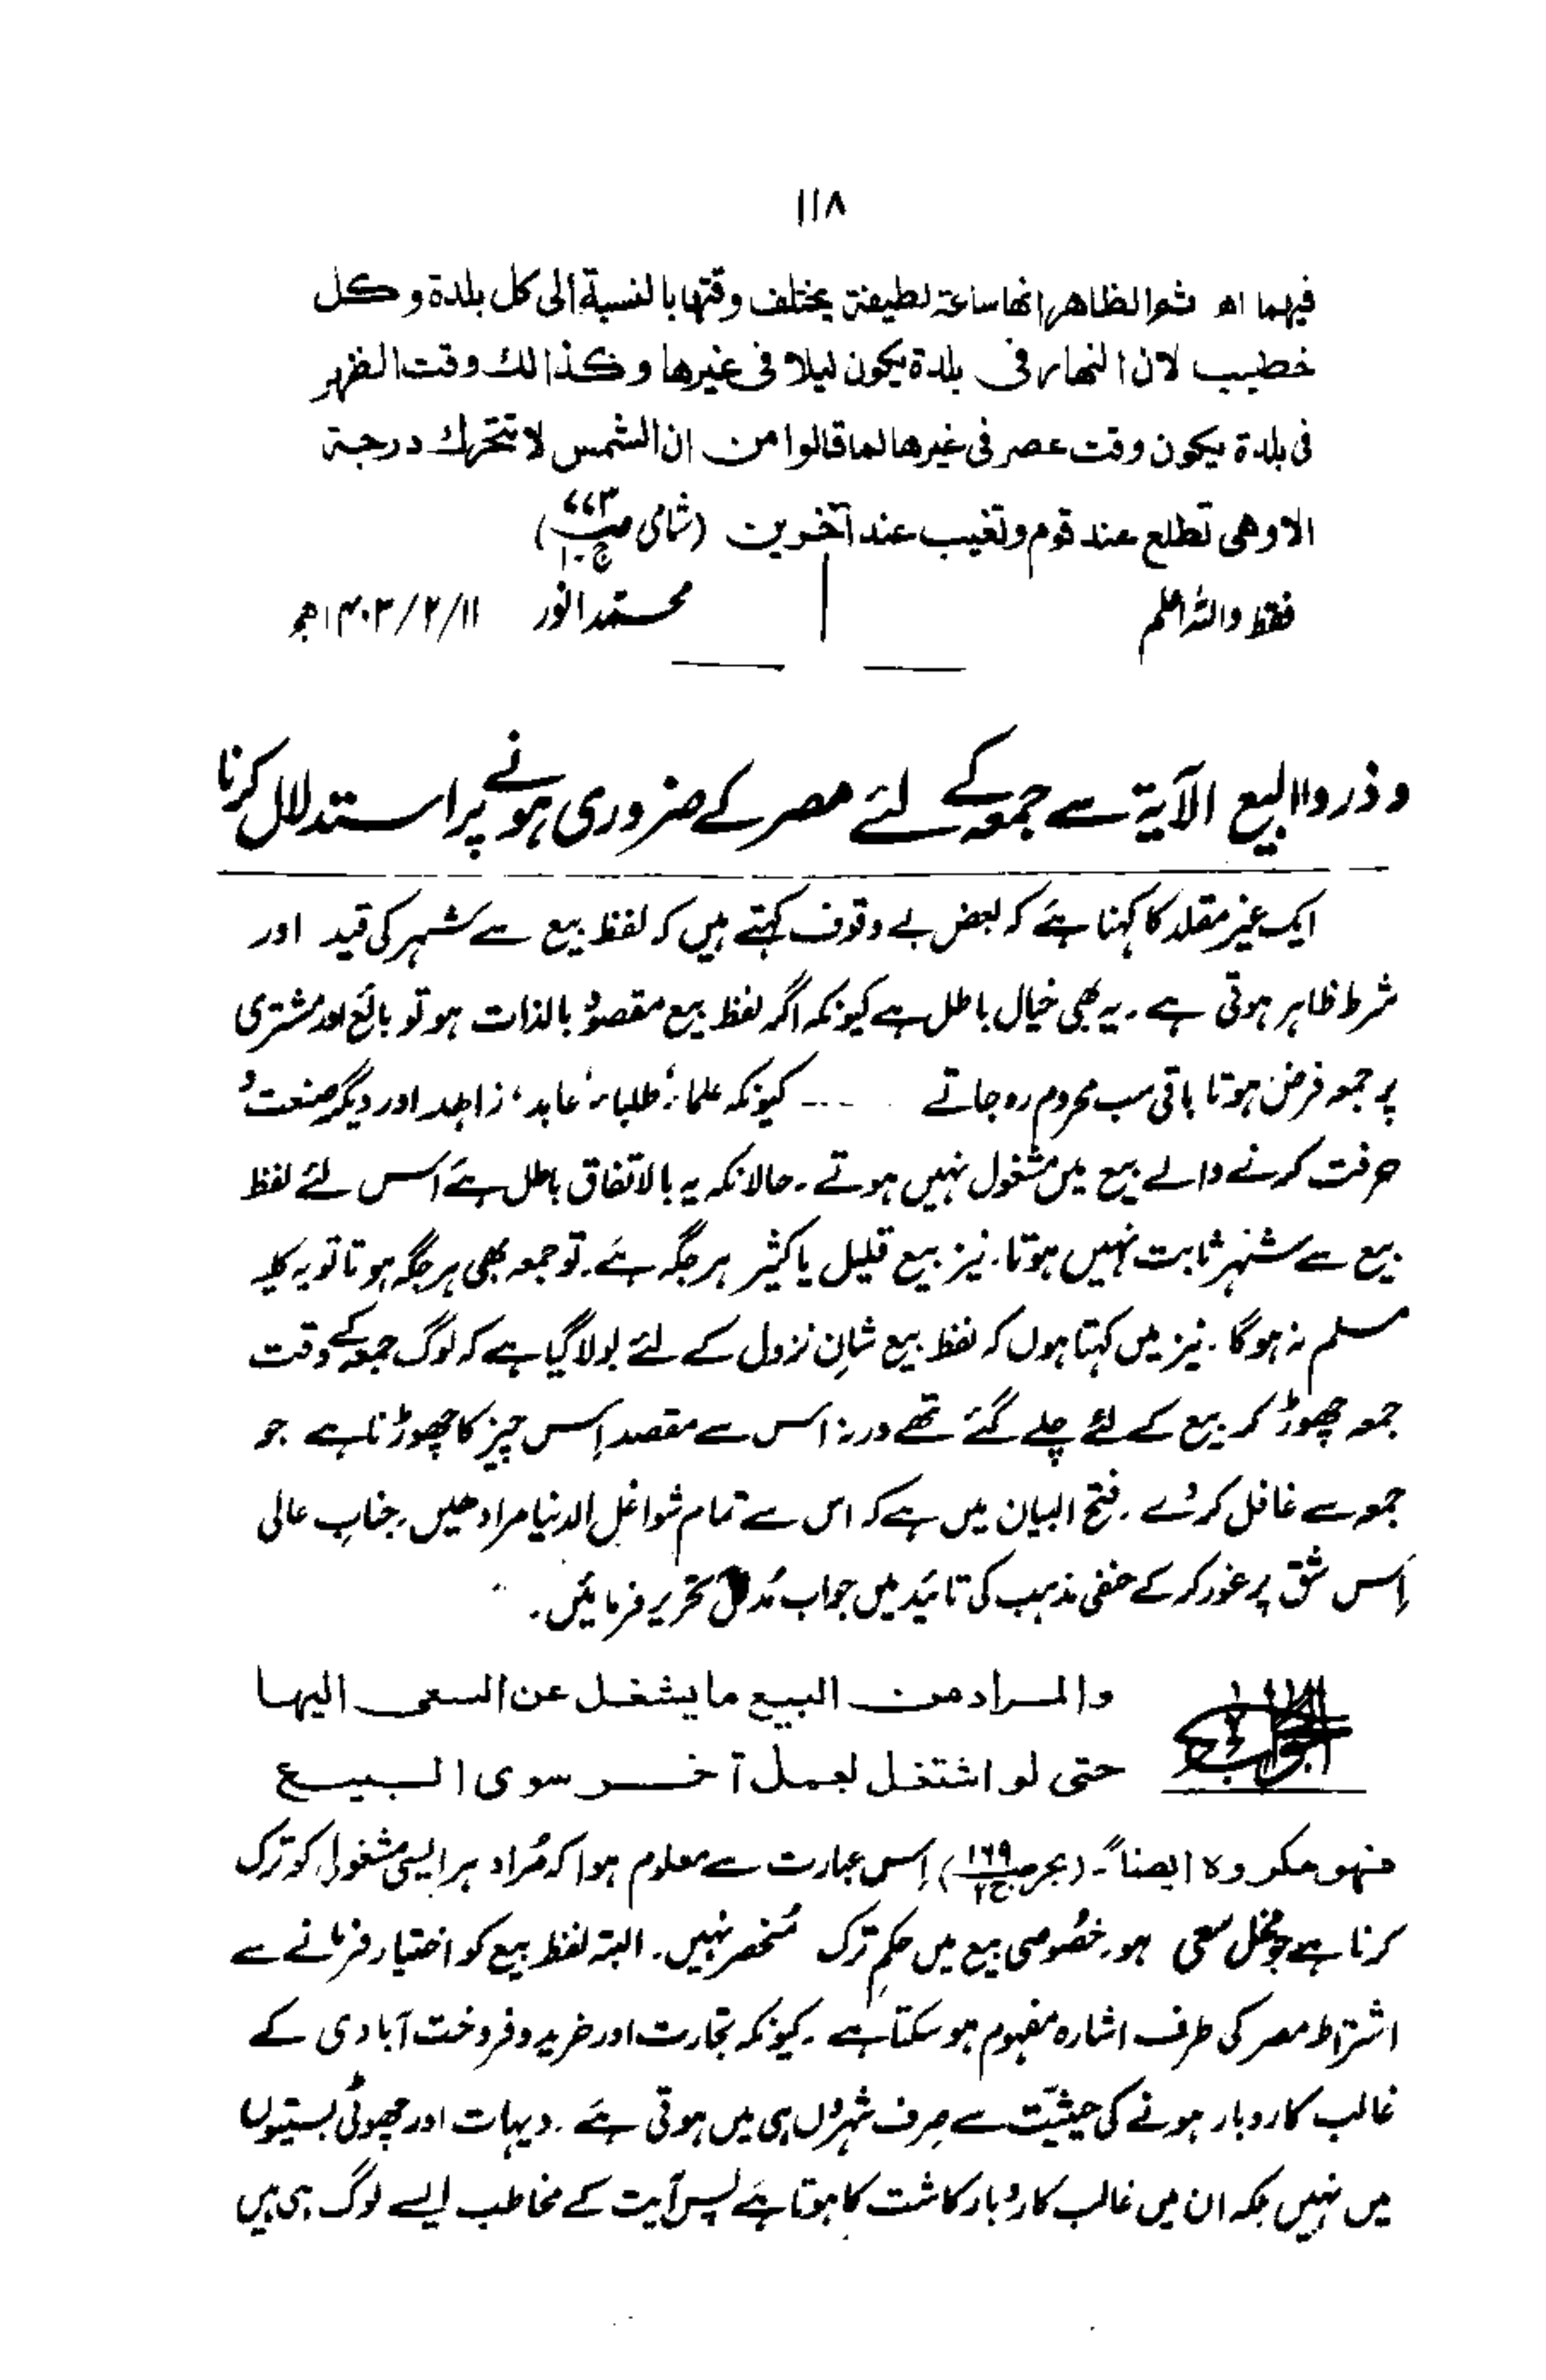 ۱۱۸
فیهما اھ ثم الظاهر انها ساعة لطیفة یختلف وقتها بالنسبة الی کل بلدة و کل
خطیب لان النهار فی بلدة یکون لیلا فی غیرها و کذالك وقت الظهر
فی بلدة یکون وقت عصر فی غیرها لما قالوا من ان الشمس لا تتحرك درجة
الا وهی تطلع عند قوم و تغیب عند آخرین (شامی ص ۷۷۳ ج ۱)
فقط واللہ اعلم محمد انور ۱۱/۲/۱۴۰۳ھ
وذروا البیع الآیة سے جمعہ کے لئے مصر کے ضروری ہونے پر استدلال کرنا
ایک غیر مقلد کا کہنا ہے کہ بعض بے وقوف کہتے ہیں کہ لفظ بیع سے شہر کی قید اور
شرط ظاہر ہوتی ہے۔ یہ بھی خیال باطل ہے کیونکہ اگر لفظ بیع مقصود بالذات ہو تو بائع اور مشتری
پر جمعہ فرض ہوتا باقی سب محروم رہ جاتے ۔۔۔۔ کیونکہ علماء، طلباء، عابد، زاہد اور دیگر صنعت و
حرفت کرنے والے بیع میں مشغول نہیں ہوتے۔ حالانکہ یہ بالاتفاق باطل ہے اس لئے لفظ
بیع سے شہر ثابت نہیں ہوتا۔ نیز بیع قلیل یا کثیر ہر جگہ ہے۔ تو جمعہ بھی ہر جگہ ہوتا تو یہ کلیہ
مسلم نہ ہوگا۔ نیز میں کہتا ہوں کہ لفظ بیع شانِ نزول کے لئے بولا گیا ہے کہ لوگ جمعہ کے وقت
جمعہ چھوڑ کر بیع کے لئے چلے گئے تھے ورنہ اس سے مقصد اِس چیز کا چھوڑنا ہے جو
جمعہ سے غافل کر دے۔ فتح البیان میں ہے کہ اس سے تمام شواغل الدنیا مراد ھیں۔ جنابِ عالی
اِس شق پر غور کر کے حنفی مذہب کی تائید میں جواب مُدلل تحریر فرمائیں۔
الجواب والمراد من البیع ما یشغل عن السعی الیها
حتی لو اشتغل لعمل آخر سوی البیع
فهو مکروه ایضاً۔ (بحر ص ۱۶۹ ج ۲) اِس عبارت سے معلوم ہوا کہ مُراد ہر ایسی مشغولی کو ترک
کرنا ہے جو مخل سعی ہو۔ خصوصی بیع میں حکمِ ترک مُنحصر نہیں۔ البتہ لفظ بیع کو اختیار فرمانے سے
اشتراط مصر کی طرف اشارہ مفہوم ہو سکتا ہے۔ کیونکہ تجارت اور خرید و فروخت آبادی کے
غالب کاروبار ہونے کی حیثیّت سے صِرف شہروں ہی میں ہوتی ہے۔ دیہات اور چھوٹی بستیوں
میں نہیں بلکہ ان میں غالب کاروبار کاشت کا ہوتا ہے پس آیت کے مخاطب ایسے لوگ ہی ہیں